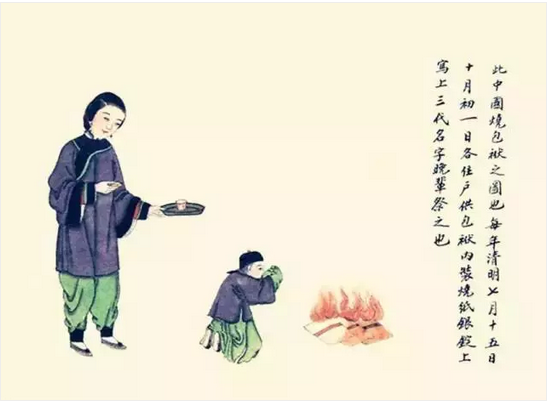 此中國燒包袱之圖也每年清明七月十五日
十月初一日各住戶供包袱內裝燒紙銀錠上
寫上三代名字晚輩祭之也